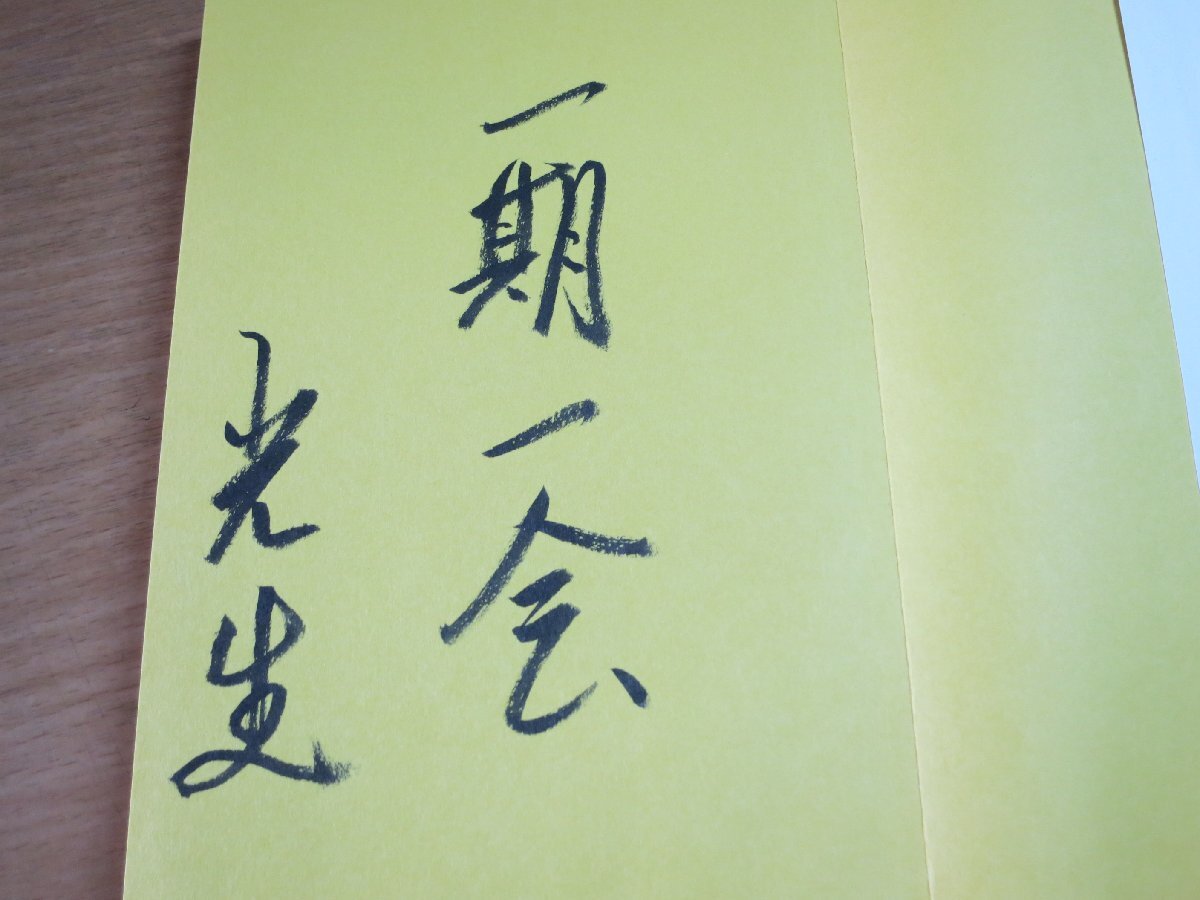 一期一会
光生